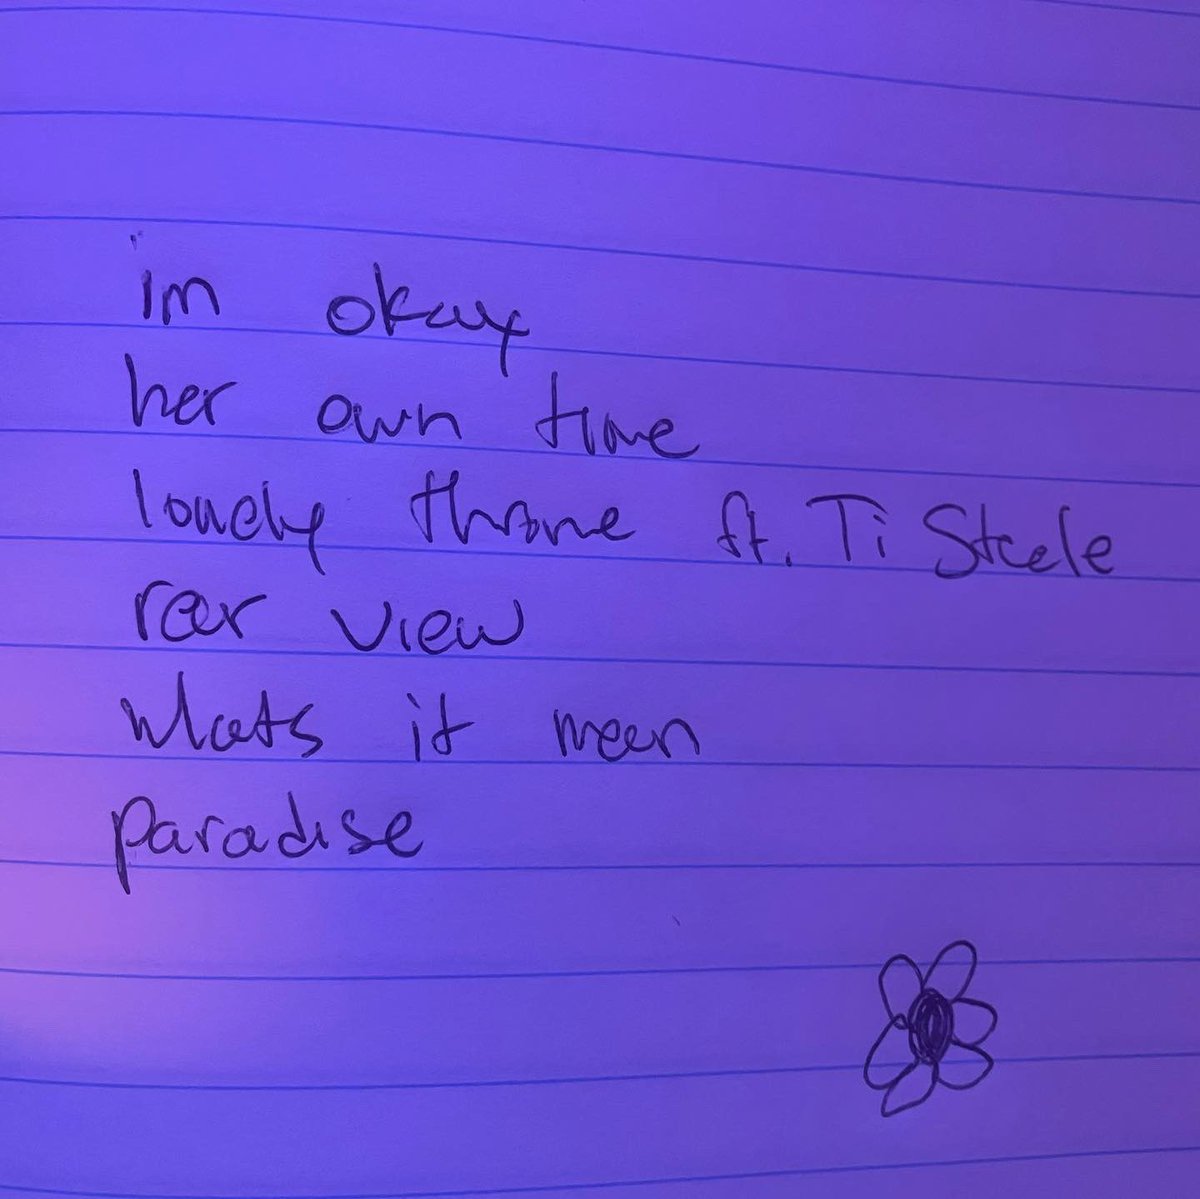 im okay
her own time
lonely throne ft. Ti Steele
rear view
whats it mean
paradise